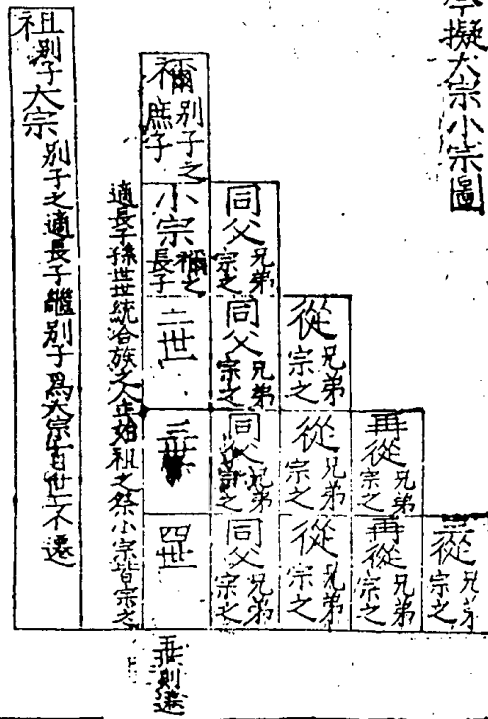 擬大宗小宗圖
三從兄弟宗之
再從兄弟宗之
再從兄弟宗之
從兄弟宗之
從兄弟宗之
從兄弟宗之
同父兄弟宗之
同父兄弟宗之
同父兄弟宗之
同父兄弟宗之
禰別子之庶子
小宗禰之長子
二世
三世
四世
五則遷
適長子孫世世統合族之人主始祖之祭小宗皆宗之
祖別子
大宗
別子之適長子繼別子爲大宗百世不遷